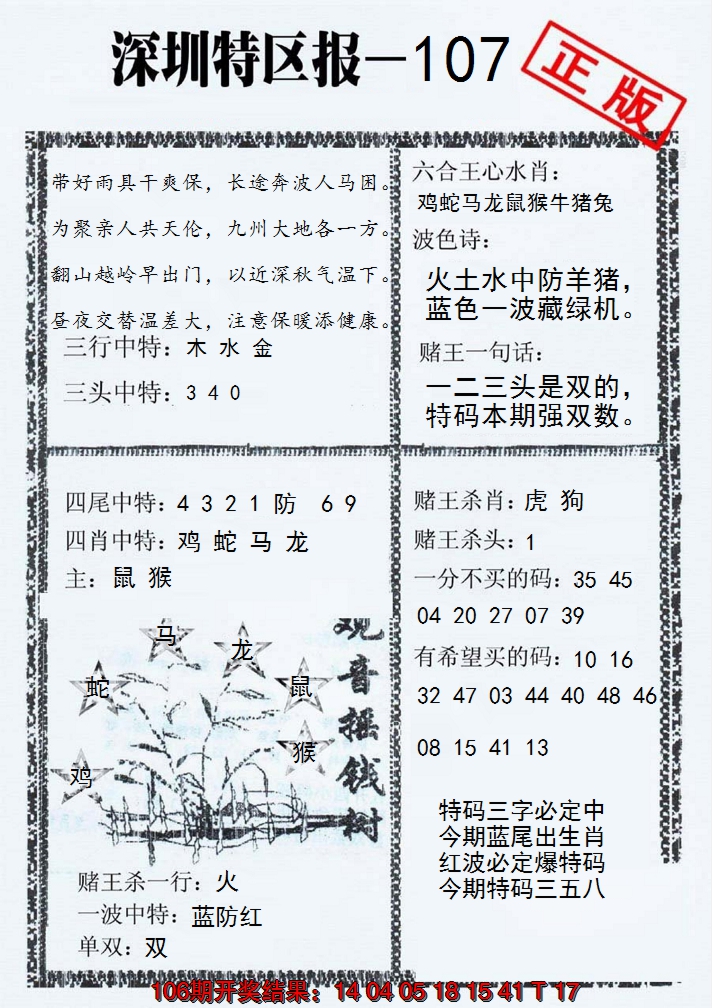 深圳特区报-107
正版
带好雨具干爽保，长途奔波人马困。
为聚亲人共天伦，九州大地各一方。
翻山越岭早出门，以近深秋气温下。
昼夜交替温差大，注意保暖添健康。
三行中特：木 水 金
三头中特：3 4 0
六合王心水肖：
鸡蛇马龙鼠猴牛猪兔
波色诗：
火土水中防羊猪，
蓝色一波藏绿机。
赌王一句话：
一二三头是双的，
特码本期强双数。
四尾中特：4 3 2 1 防 6 9
四肖中特：鸡 蛇 马 龙
主：鼠 猴
马
龙
蛇
鼠
猴
鸡
观音摇钱树
赌王杀一行：火
一波中特：蓝防红
单双：双
赌王杀肖：虎 狗
赌王杀头：1
一分不买的码：35 45
04 20 27 07 39
有希望买的码：10 16
32 47 03 44 40 48 46
08 15 41 13
特码三字必定中
今期蓝尾出生肖
红波必定爆特码
今期特码三五八
106期开奖结果：14 04 05 18 15 41 T 17